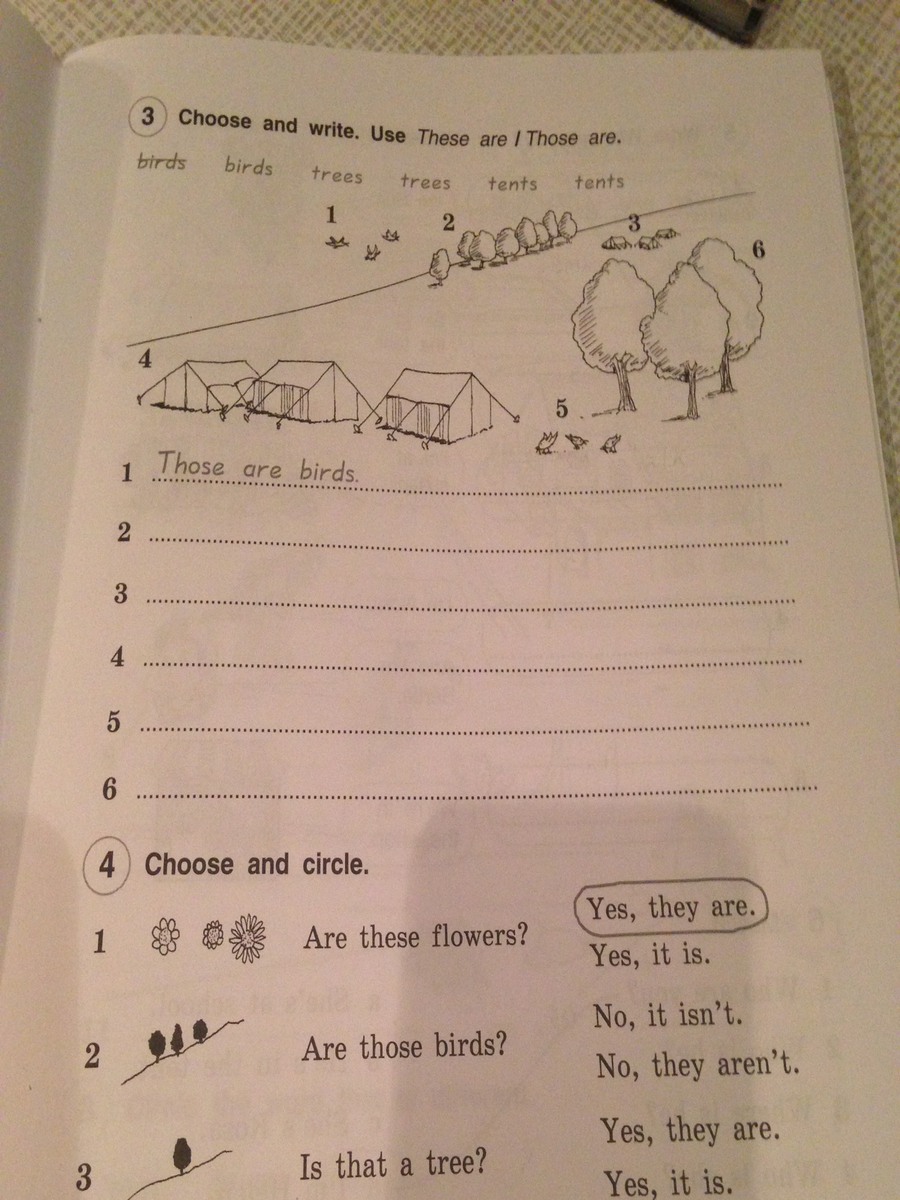 3 Choose and write. Use These are / Those are.
birds birds trees trees tents tents
1 2 3
6
4
5
1 Those are birds.
2
3
4
5
6
4 Choose and circle.
1 Are these flowers? Yes, they are.
Yes, it is.
No, it isn't.
2 Are those birds?
No, they aren't.
Yes, they are.
3 Is that a tree?
Yes, it is.